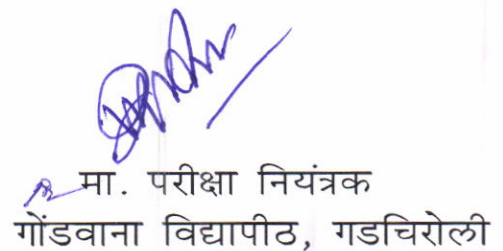 मा. परीक्षा नियंत्रक
गोंडवाना विद्यापीठ, गडचिरोली